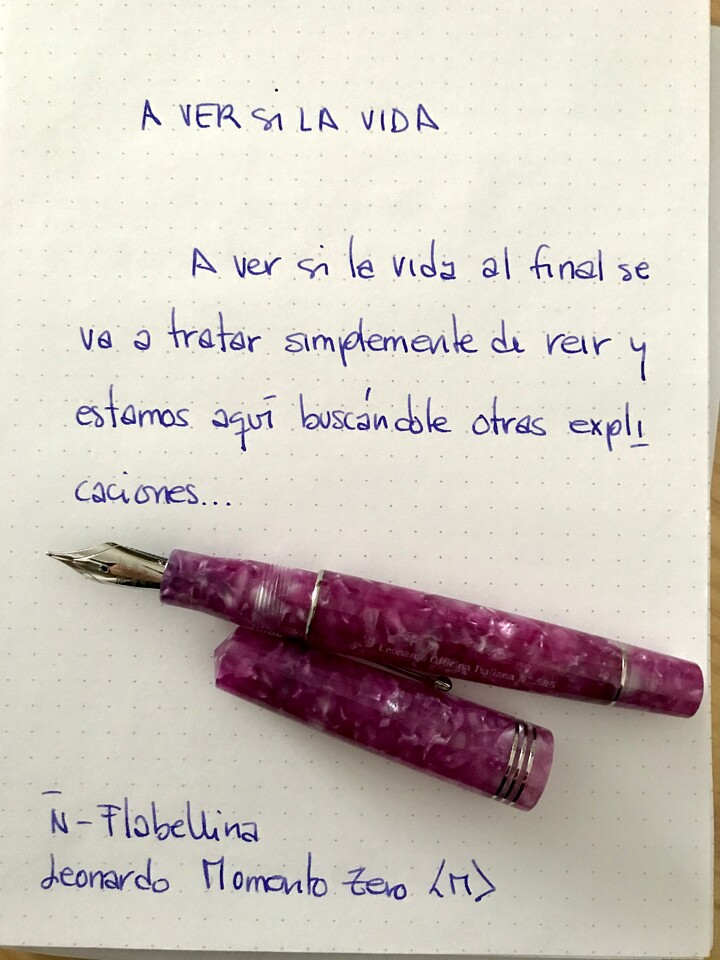 A VER SI LA VIDA
A ver si la vida al final se
va a tratar simplemente de reir y
estamos aquí buscándole otras expli
caciones...
Leonardo Officina Italiana N° 585
Ñ - Flabellina
Leonardo Momento Zero <M>